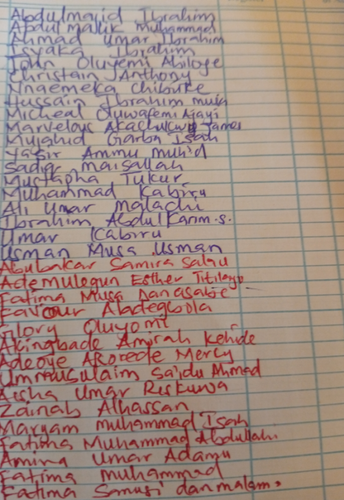 Abdulmajid Ibrahim
Abdul malik muhammad
Ahmad Umar Ibrahim
Isyaka Ibrahim
John Oluyemi Abiloye
Christain Anthony
Nnaemeka Chibuke
Hussain Ibrahim musa
Micheal Oluwafemi Ajayi
Marvelous Akachukwu James
Mujahid Garba Isah
Yasir Aminu muh'd
Sadiq maisallah
Mustapha Tukur
Muhammad Kabiru
Ali Umar malachi
Ibrahim AbdulKarim .S.
Umar Kabiru
Usman Musa Usman
Abubakar Samira Salisu
Ademulegun Esther Titilayo
Fatima Musa Danasabe
Favour Abadegbola
Glory Oluyomi
Akingbade Amirah Kehide
Adeoye Aborede Mercy
Ummusulaim Sa'idu Ahmad
Aisha Umar Riskuwa
Zainab Alhassan
Maryam muhammad Isah
Fatima Muhammad Abdullahi.
Amina Umar Adamu
Fatima muhammad
Fatima Sanusi danmalam.